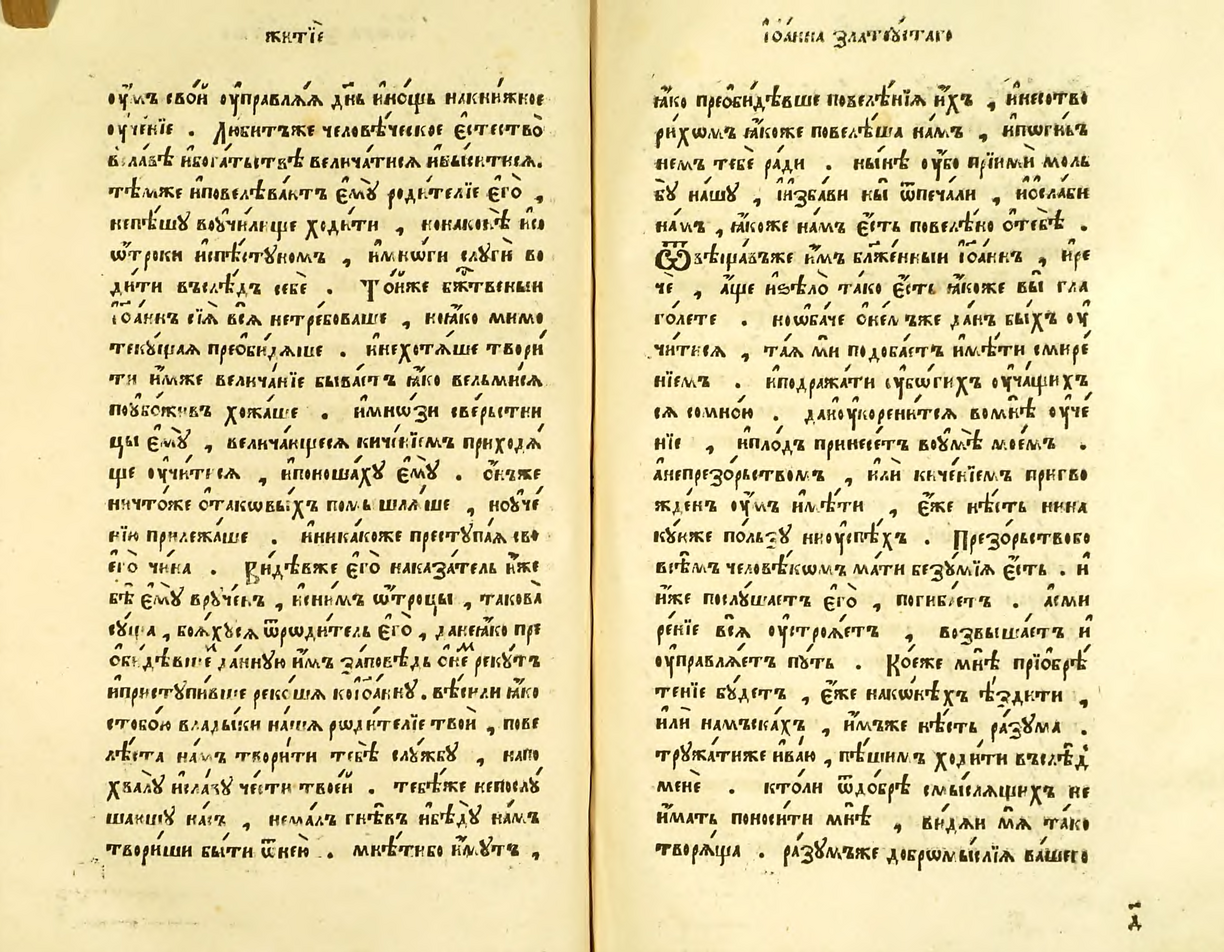 житїѐ
оу҆́мъ сво́й оу҆правлѧ́ѧ дн҃ь ино́щь накни́жное
оу҆че́нїе . Лю́битъже человѣ́ческое є҆стество̀
всла́вѣ ибога́тьствѣ велича́тисѧ ивы́ситисѧ.
тѣ́мже иповелѣва́ютъ є҆мꙋ̀ роди́телїе є҆гѡ̀ ,
непѣ́шꙋ воучи́лище ходи́ти , нонако́нѣ исо
ѿтроки испѣ́стꙋномъ , имнѡ́ги слꙋгѝ во
ди́ти въслѣ́дъ себѐ . То́йже бж҃твеныи
і҆ѡа́ннъ сїѧ̀ всѧ̀ нетре́боваше , ноꙗ҆́ко мимо
текꙋ́щаѧ преѡби́дѧше . инехотѧ́ше твори́
ти и҆́мже велича́нїе быва́етъ ꙗ҆́ко вельми́сѧ
поубо́живъ хожа́ше . имнѡ́зи све́рьстни
цы є҆мꙋ̀ , велича́ющесѧ киче́нїемъ приходѧ́
ще оу҆чи́тисѧ , ипоноша́хꙋ є҆мꙋ̀ . ѻ҆́нъже
ничто́же ѻ҆таковы́хъ помышлѧ́ше , ноуче́
нїю прилежа́ше . иникакоже престꙋпа́ѧ сво
его̀ чи́на . Ви́дѣвже є҆го̀ наказа́тель и҆́же
бѣ̀ є҆мꙋ̀ врꙋче́нъ , исни́мъ ѿтроцы , такова̀
сꙋ́ща , боѧ́хꙋсѧ ѿроди́тель є҆гѡ̀ , данеꙗ҆́ко пре
ѻ҆би́дѣвше да́ннꙋю и҆́мъ за́повѣдь ѻ҆не́м рекꙋ́тъ
иприступи́вше реко́шѧ коі҆ѡа́ннꙋ . вѣ́сили ꙗ҆́ко
стобо́ю влады́ки на́шѧ роди́телїе твоѝ , пове
лѣ́ста на́мъ твори́ти тебѣ̀ слꙋ́жбꙋ , напо
хвалꙋ̀ исла́вꙋ че́сти твое́й . тебѣ́же непослꙋ́
шавшꙋ на́съ , нема́лъ гнѣ́въ ибѣдꙋ̀ на́мъ
твори́ши бы́ти ѿнею̀ . мнѣ́тибо и҆́мꙋтъ ,
і҆ѡа́нна златоꙋ́стаго
ꙗ҆́ко преѡби́дѣвше повелѣ́нїѧ и҆́хъ , инесотво
ри́хомъ ꙗ҆́коже повелѣ́ша на́мъ , ипогни́въ
немъ тебѐ ра́ди . ны́нѣ оу҆́бо прїимѝ моль
бꙋ̀ на́шꙋ , иизба́ви ны̀ ѿпеча́ли , иѻ҆сла́би
на́мъ , ꙗ҆́коже на́мъ є҆́сть повелѣ́но ѻ҆тебѣ̀ .
Ѿвѣща́въже и҆́мъ бл҃же́нныи і҆ѡа́ннъ , ире
чѐ , а҆́ще иѕѣлѡ̀ та́ко є҆́сть ꙗ҆́коже вы̀ гла
го́лете . ноѡба́че ѻ҆не́лѣже да́нъ бы́хъ оу҆
чи́тисѧ , та́ѧ мѝ подоба́етъ имѣ́ти смире́
нїемъ . иподража́ти оубо́гихъ оу҆ча́щихъ
сѧ сомно́ю . даноукорени́тсѧ вомнѣ̀ оу҆че́
нїе , ипло́дъ принесе́тъ воумѣ̀ мое́мъ .
анепрезо́рьствомъ , и҆лѝ киче́нїемъ пригво
жде́нъ оу҆́мъ имѣ́ти , є҆́же нѣ́сть нина
кꙋ́юже по́льзꙋ ниоуспѣ́хъ . Презо́рьствобо
всѣ́мъ человѣ́комъ ма́ти безꙋ́мїѧ є҆́сть . и
и҆́же послꙋ́шаетъ є҆го̀ , поги́бнетъ . асми
ре́нїе всѧ̀ оу҆стро́ѧетъ , возвыша́етъ и
оу҆правлѧ́етъ пꙋ́ть . Ко́еже мнѣ̀ прїѡбрѣ́
тенїе бꙋ́детъ , є҆́же нако́нѣхъ ѣ҆́здити ,
и҆лѝ намъска́хъ , и҆́мъже нѣ́сть ра́зꙋма .
трꙋжа́тиже ива́ю , пѣ́шимъ ходи́ти въслѣ́д
менѐ . кто́ли ѿдо́брѣ смы́слѧщихъ не
и҆́мать поноси́ти мнѣ̀ , ви́дѧи мѧ̀ та́ко
творѧ́ща . разꙋ́мъже добромы́слїѧ ва́шего
д҃